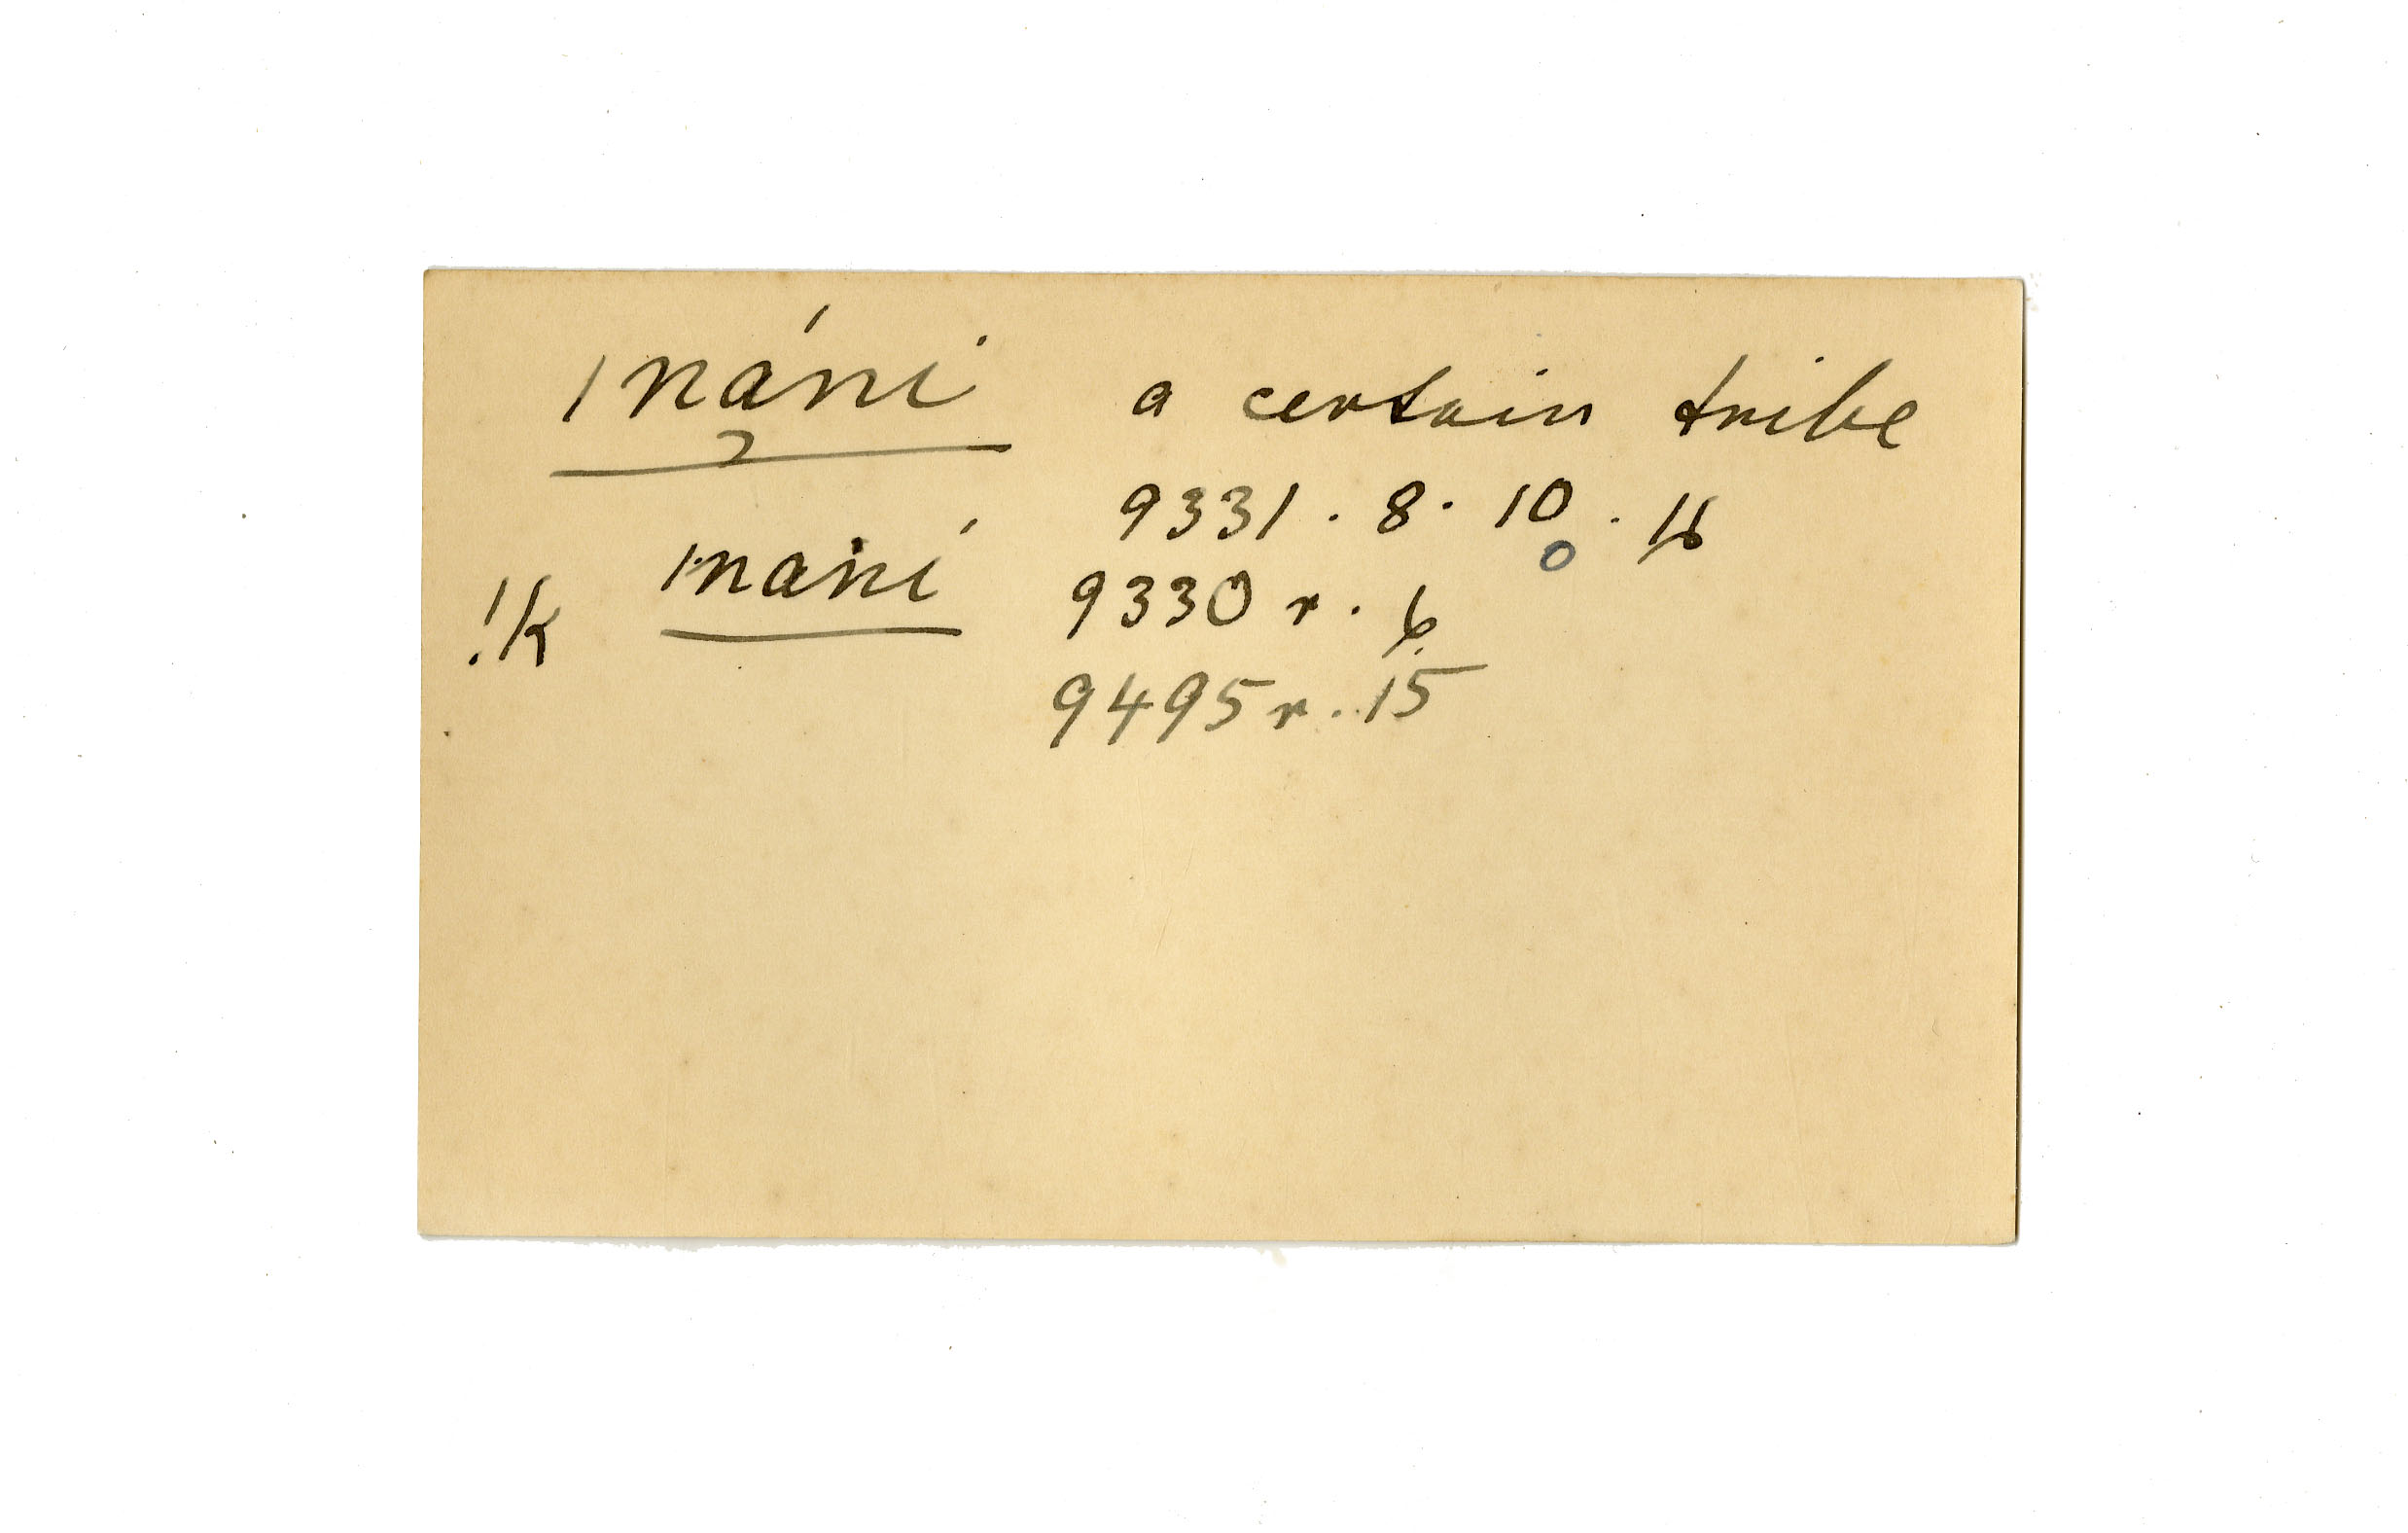 ǀnáni a certain tribe
9331 . 8 . 10 .
!k ǀnaní 9330 r . 6
9495 r . 15